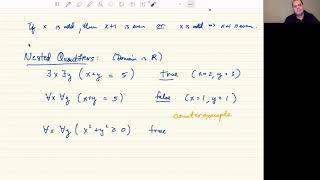 If x is odd, then x+1 is even or x is odd → x+1 is even.
Nested Quantifiers: (Domain is R)
∃x ∃y (x+y = 5) true (x=2, y=3)
∀x ∀y (x+y = 5) false (x=1, y=1)
counterexample
∀x ∀y (x²+y² ≥ 0) true